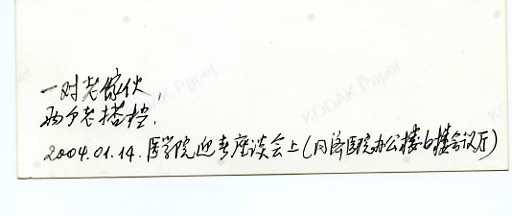 一对老傢伙,
两个老搭档.
2004.01.14.医学院迎春座谈会上(同济医院办公楼6楼会议厅)
KODAK Paper
KODAK Paper